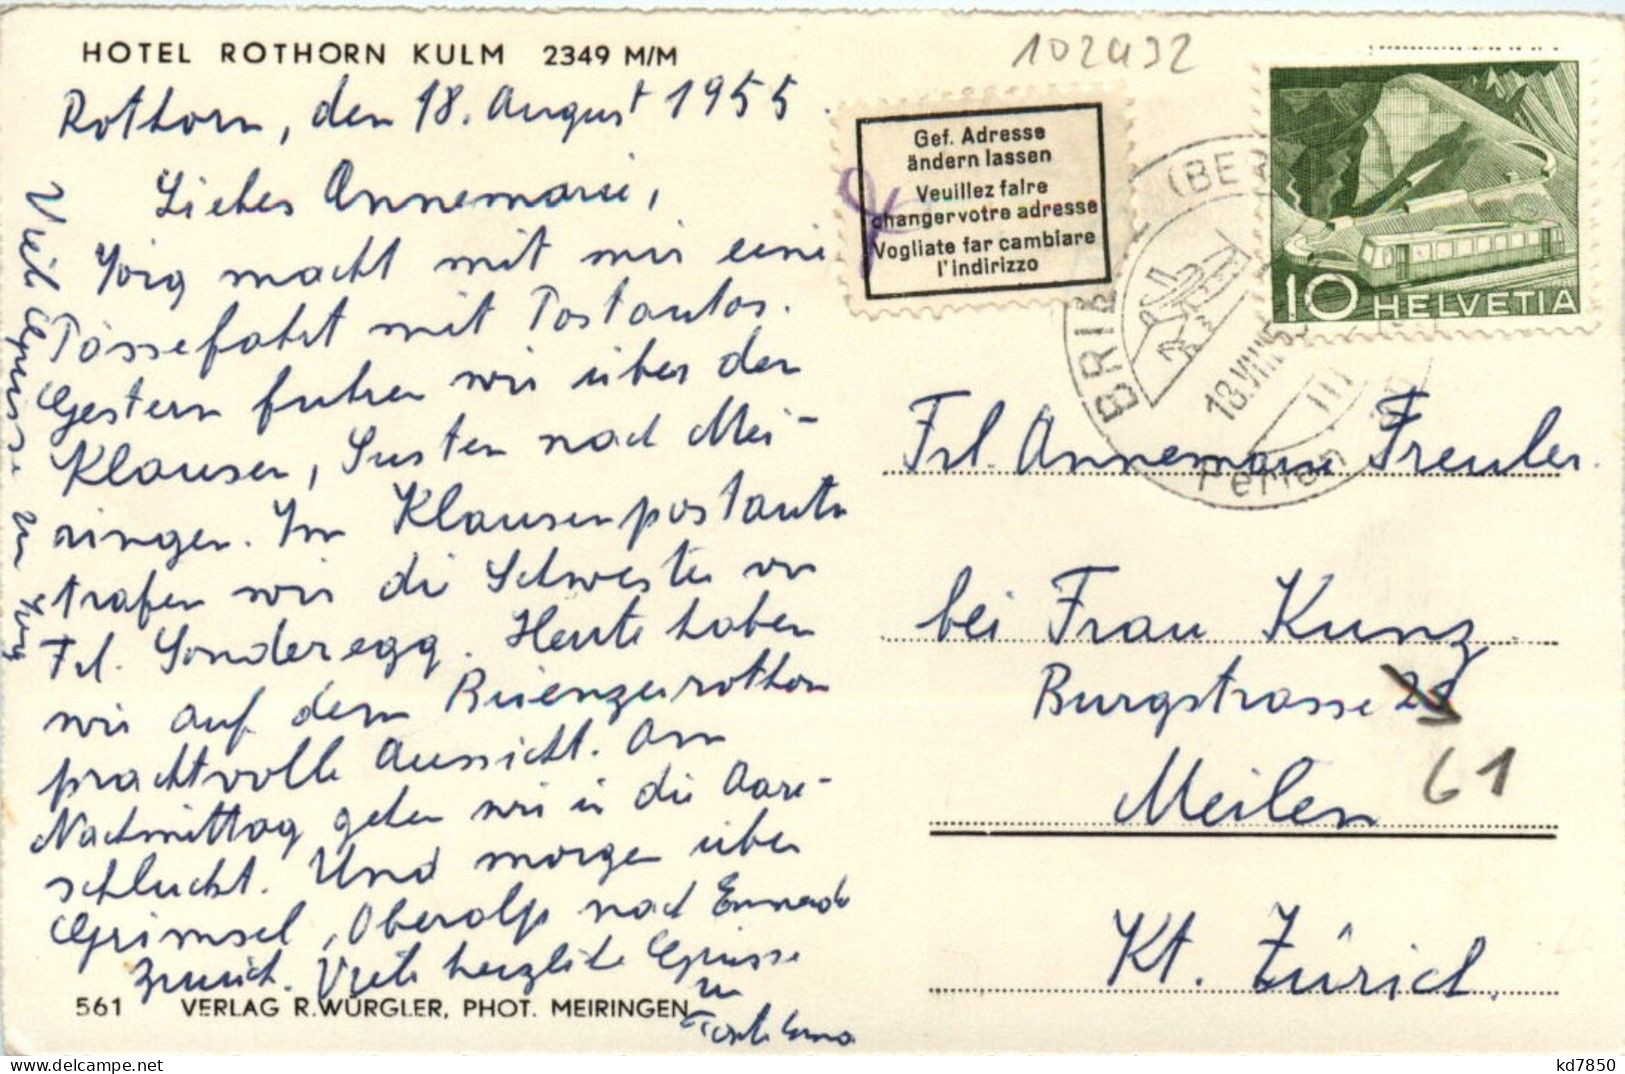 HOTEL ROTHORN KULM 2349 M/M
Rothorn, den 18. August 1955.
Liebes Annemarie,
Jörg macht mit mir eine
Pässefahrt mit Postautos.
Gestern fuhren wir über den
Klausen, Susten nach Mei-
ringen. Im Klausenpostauto
trafen wir die Schwester von
Frl. Sonderegg. Heute haben
wir auf dem Brienzerrothorn
prachtvolle Aussicht. Am
Nachmittag gehen wir in die Aare-
schlucht. Und morgen über
Grimsel, Oberalp nach Ennenda
zurück. Viele herzliche Grüsse
Viele Grüsse von Jörg
561 VERLAG R. WÜRGLER, PHOT. MEIRINGEN
102432
Gef. Adresse
ändern lassen
Veuillez faire
changer votre adresse
Vogliate far cambiare
l'indirizzo
10 HELVETIA
(BER
BRI
18.VIII.5
Ferien
Frl. Annemarie Freuler.
bei Frau Kunz.
Burgstrasse
61
Meilen
Kt. Zürich.
kd7850